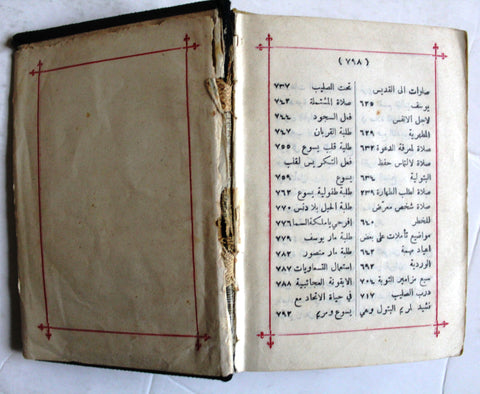 (٧٩٨)
صلوات الى القديس
يوسف ٦٢٥
لاجل الانفس
المطهرية ٦٢٩
صلاة لمعرفة الدعوة ٦٣٢
صلاة لالتماس حفظ
البتولية ٦٣٤
صلاة لطلب الطهارة ٢٣٩
صلاة شخص معرّض
للخطر ٦٤٠
مواضيع تأملات على بعض
اعياد مهمة ٦٤٢
الوردية ٦٩٢
سبع مزامير التوبة ٧٠٤
درب الصليب ٧١٧
نشيد لمريم البتول وهي
تحت الصليب ٧٣٧
صلاة المشتملة ٧٤٢
فعل السجود ٧٤٤
طلبة القربان ٧٤٧
طلبة قلب يسوع ٧٥٥
فعل التكريس لقلب
يسوع ٧٥٩
طلبة طفولية يسوع ٧٦٢
طلبة الحبل بلا دنس ٧٧٠
افرحي يا ملكة السما ٧٧٦
طلبة مار يوسف ٧٧٩
طلبة مار منصور ٧٨٢
استعمال التسعاويات ٧٨٧
الايقونة العجائبية ٧٨٨
في حياة الاتحاد مع
يسوع ومريم ٧٩٢